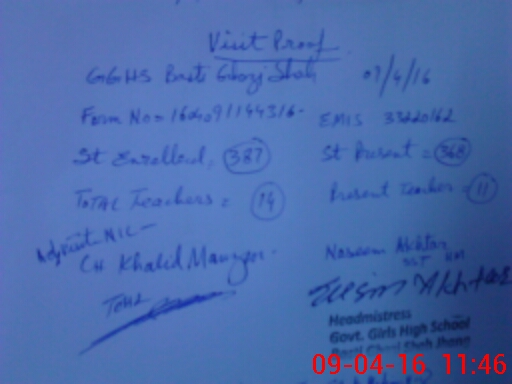 Visit Proof
GGHS Basti Ghazi Shah 09/4/16
Form No = 160409/144316-
EMIS 33220162
St Enrolled, 387 St Present = 368
Total Teachers = 14 Present Teacher = 11
CH Khalid Manzoor.
Naseem Akhtar
SST HM
Headmistress
Govt. Girls High School
Basti Ghazi Shah Jhang
09-04-16 11:46